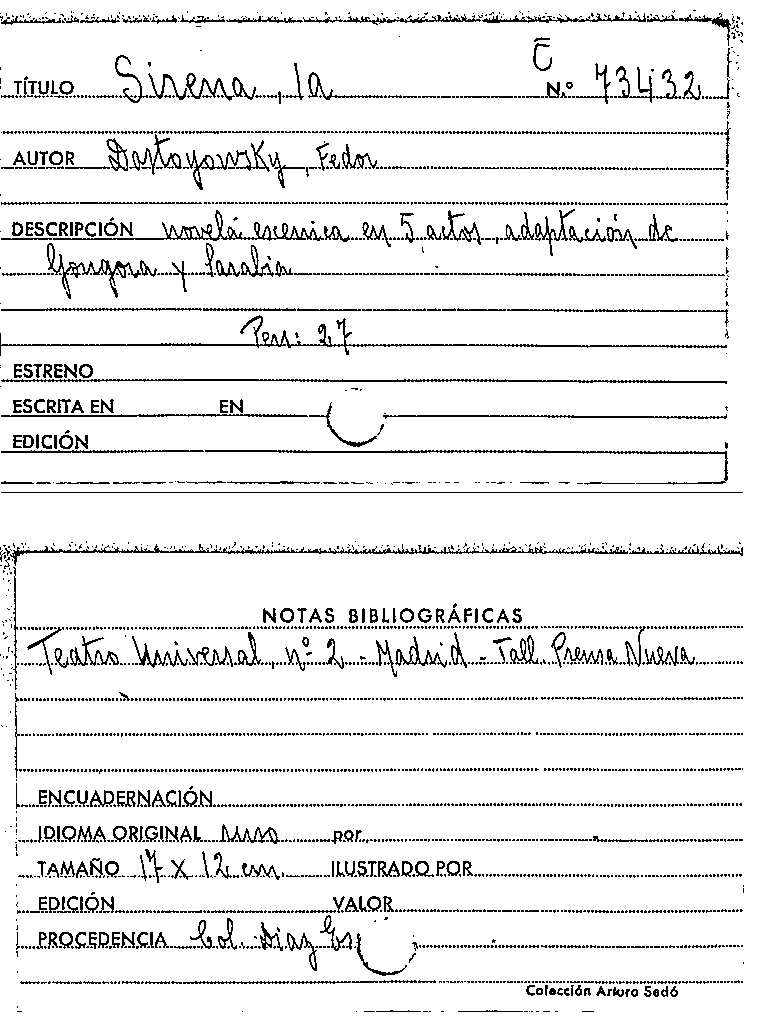 C̄
TÍTULO Sirena, la N.º 73432
AUTOR Dostoyowsky, Fedor
DESCRIPCIÓN novela escenica en 5 actos, adaptación de
Gongora y Sarabia
Pers: 27
ESTRENO
ESCRITA EN EN
EDICIÓN
NOTAS BIBLIOGRÁFICAS
Teatro Universal, nº 2 - Madrid - Tall. Prensa Nueva
ENCUADERNACIÓN
IDIOMA ORIGINAL ruso por
TAMAÑO 17 X 12 cm. ILUSTRADO POR
EDICIÓN VALOR
PROCEDENCIA Col. Diaz Es
Colección Arturo Sedó